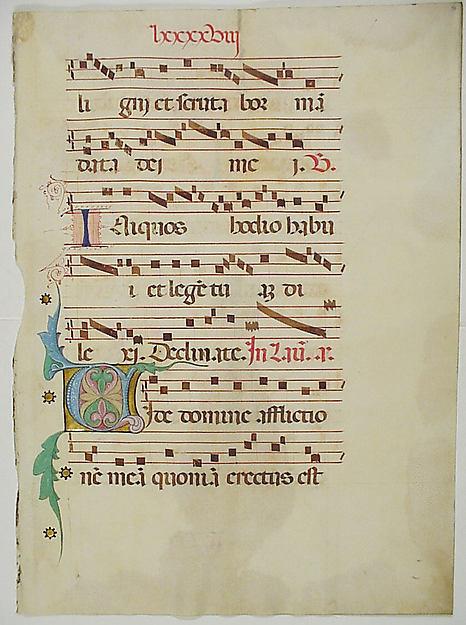 lxxxxviij
li gnj et scruta bor mā
data dei me j. V.
INiquos hodio habu
i et legē tu āz di
le xj. Declinate. In Lau. a.
Vide domine afflictio
nē meā quoniā erectus est